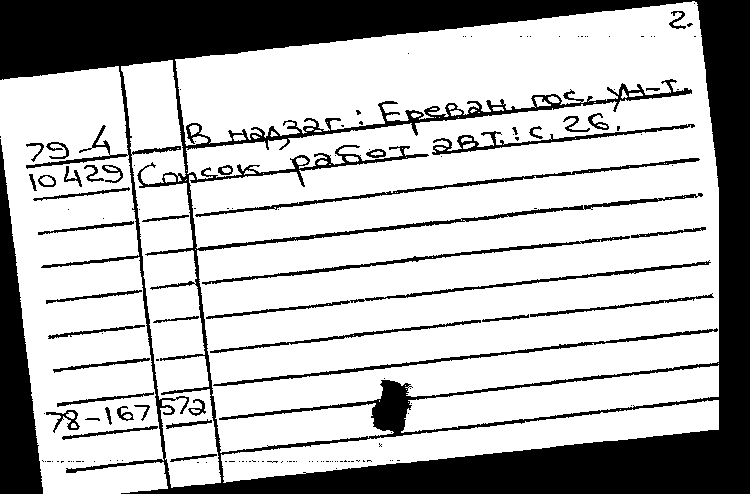 2.
79-4 В надзаг.: Ереван. гос. ун-т.
10429 Список работ авт.: с. 26.
78-167572